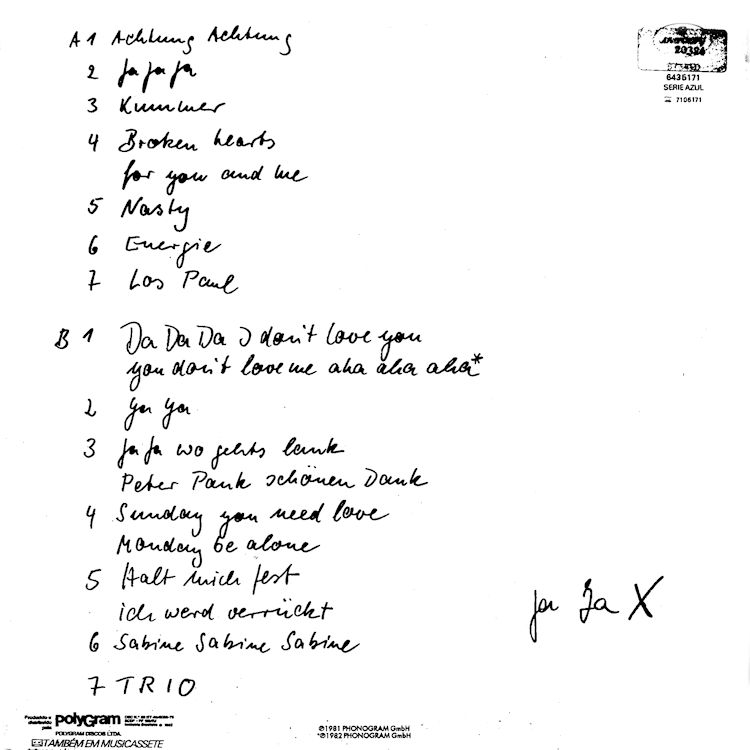 A 1 Achtung Achtung
2 Ja Ja Ja
3 Kummer
4 Broken hearts
for you and me
5 Nasty
6 Energie
7 Los Paul
B 1 Da Da Da I don't love you
you don't love me aha aha aha*
2 Ya Ya
3 Ja Ja wo gehts lank
Peter Pank schönen Dank
4 Sunday you need love
Monday be alone
5 Halt mich fest
ich werd verrückt
6 Sabine Sabine Sabine
7 TRIO
Ja Ja X
20324
6436171
SERIE AZUL
7106171
Produzido e
distribuído
pela
polyGram
POLYGRAM DISCOS LTDA.
Indústria Brasileira
TAMBÉM EM MUSICASSETE
℗1981 PHONOGRAM GmbH
*℗1982 PHONOGRAM GmbH